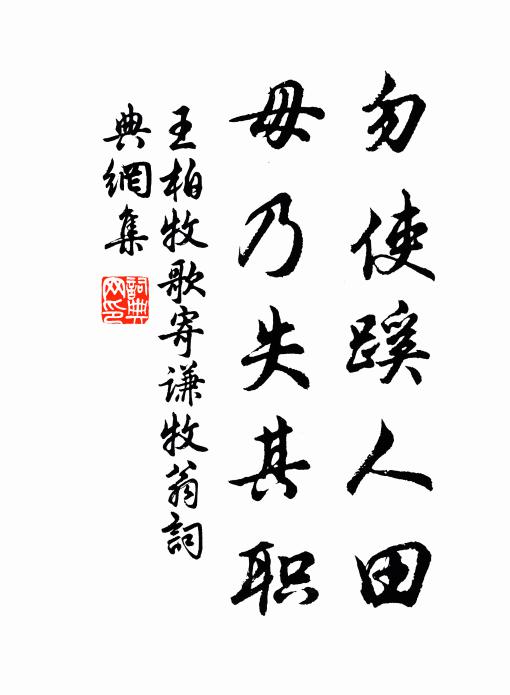 勿使蹊人田
毋乃失其职
王柏牧歌寄谦牧翁詞
典網集
詞典网印